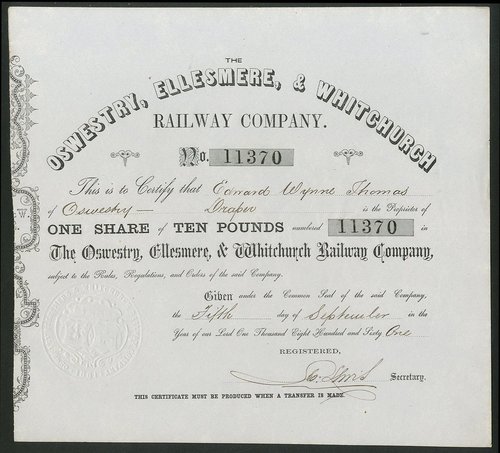 THE
OSWESTRY, ELLESMERE, & WHITCHURCH
RAILWAY COMPANY.
No. 11370
This is to Certify that Edward Wynne Thomas
of Oswestry — Draper is the Proprietor of
ONE SHARE of TEN POUNDS numbered 11370 in
The Oswestry, Ellesmere, & Whitchurch Railway Company,
subject to the Rules, Regulations, and Orders of the said Company.
Given under the Common Seal of the said Company,
the Fifth day of September in the
Year of our Lord One Thousand Eight Hundred and Sixty One
REGISTERED,
Secretary.
THIS CERTIFICATE MUST BE PRODUCED WHEN A TRANSFER IS MADE.